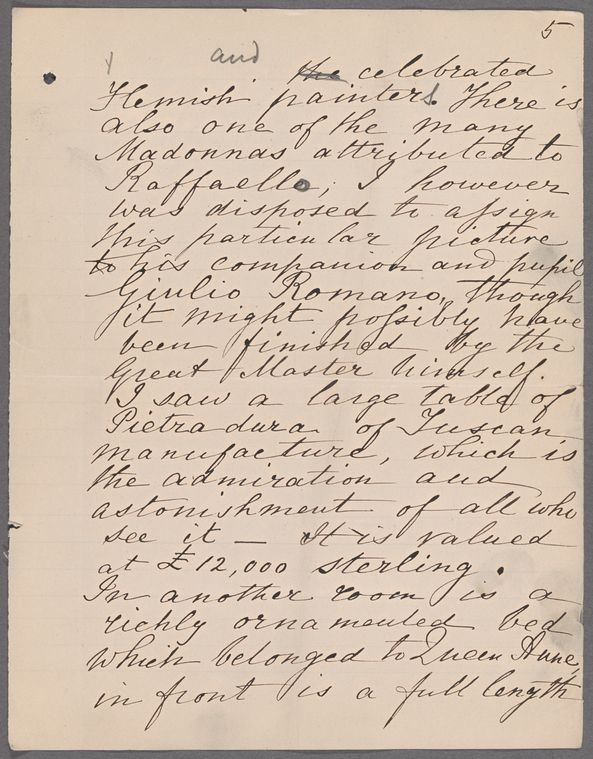 5
and
the celebrated
Flemish painters. There is
also one of the many
Madonnas attributed to
Raffaello; I however
was disposed to assign
this particular picture
to his companion and pupil
Giulio Romano, though
it might possibly have
been finished by the
Great Master himself.
I saw a large table of
Pietra dura of Tuscan
manufacture, which is
the admiration and
astonishment of all who
see it — It is valued
at £12,000 sterling.
In another room is a
richly ornamented bed
which belonged to Queen Anne,
in front is a full length